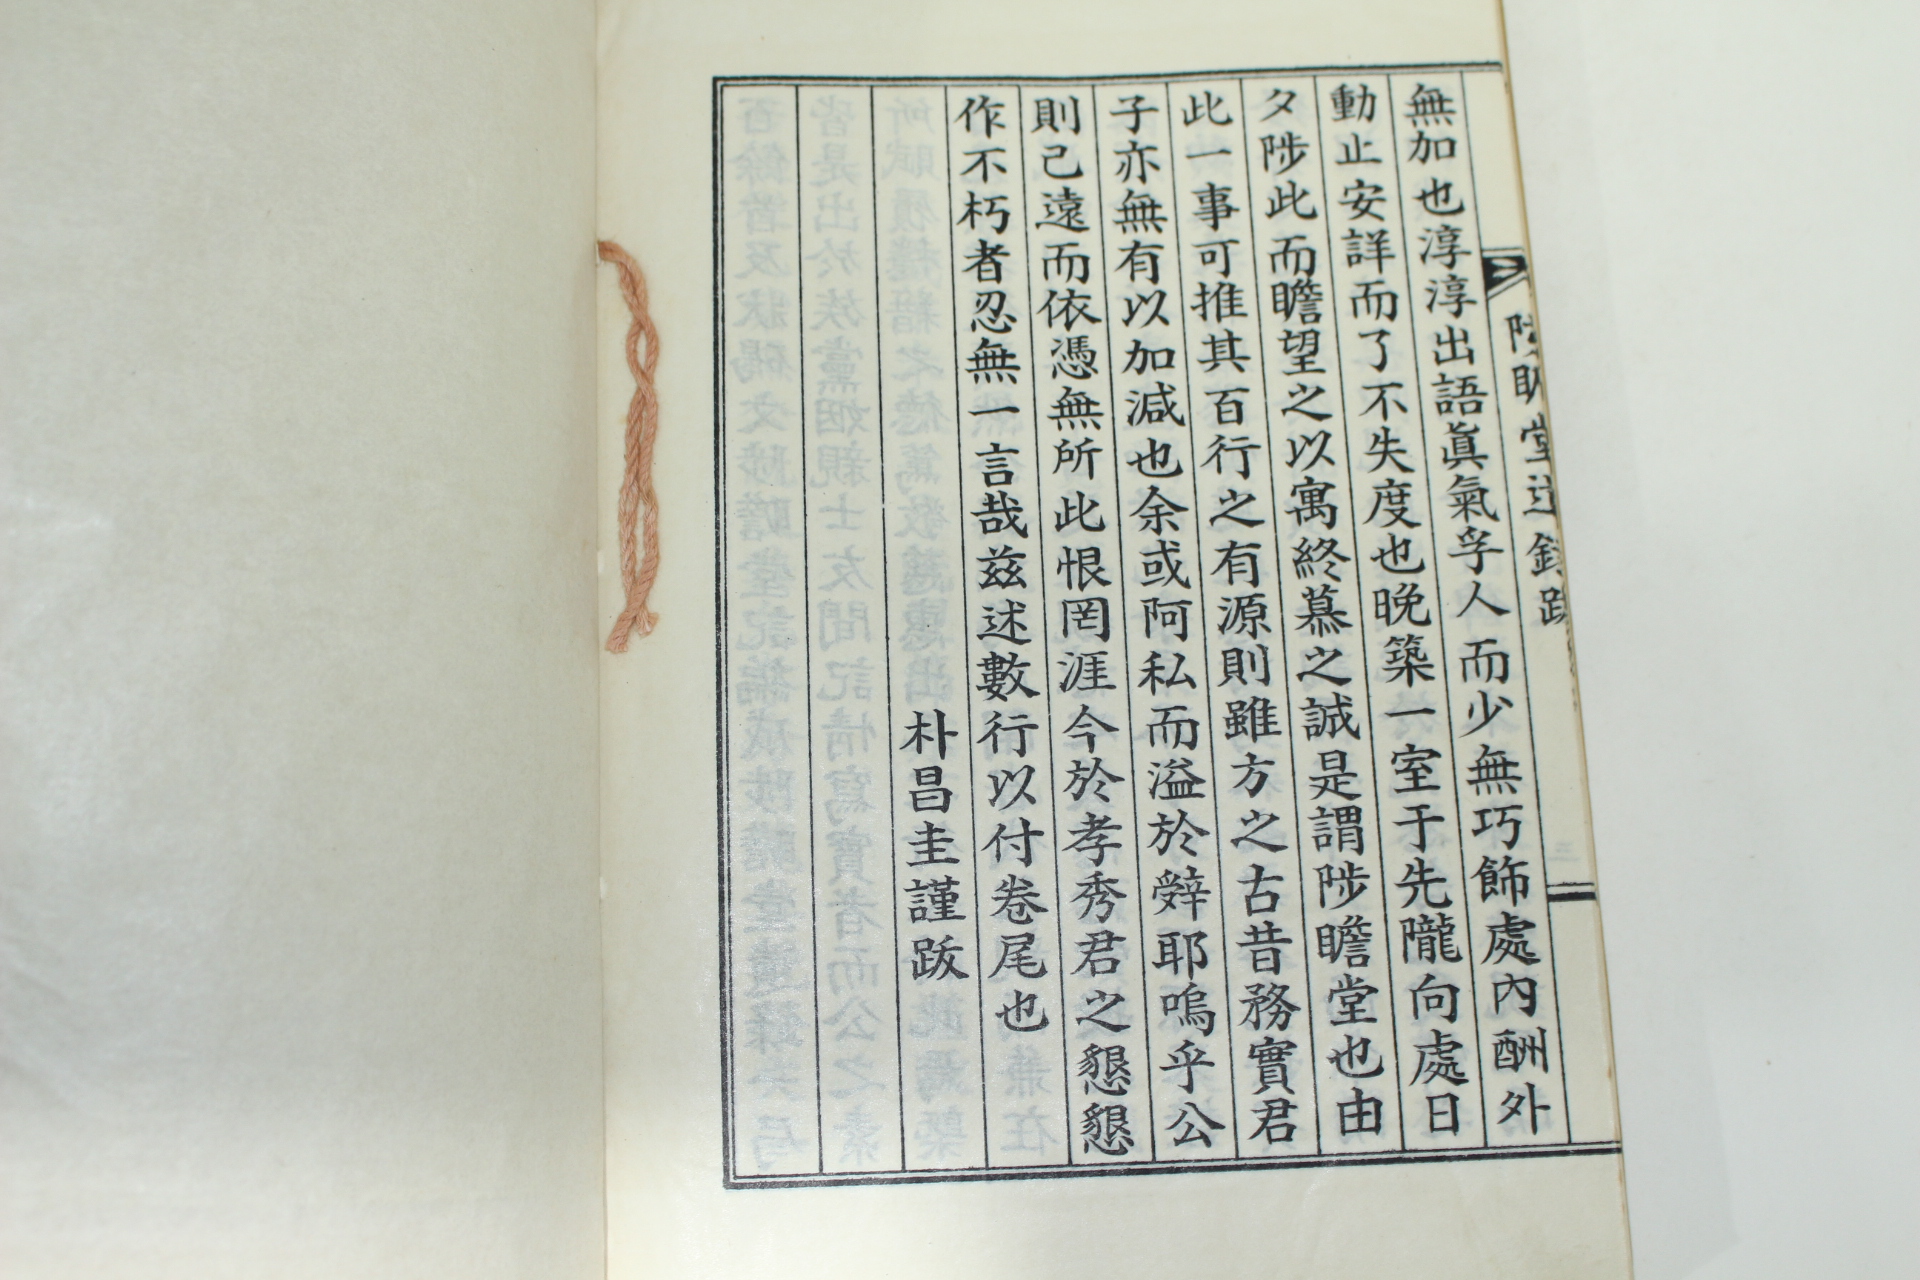 陟瞻堂述錄跋
無加也淳淳出語眞氣孚人而少無巧飾處內酬外
動止安詳而了不失度也晩築一室于先隴向處日
夕陟此而瞻望之以寓終慕之誠是謂陟瞻堂也由
此一事可推其百行之有源則雖方之古昔務實君
子亦無有以加減也余或阿私而溢於辭耶嗚乎公
則己遠而依憑無所此恨罔涯今於孝秀君之懇懇
作不朽者忍無一言哉茲述數行以付卷尾也
朴昌圭謹跋